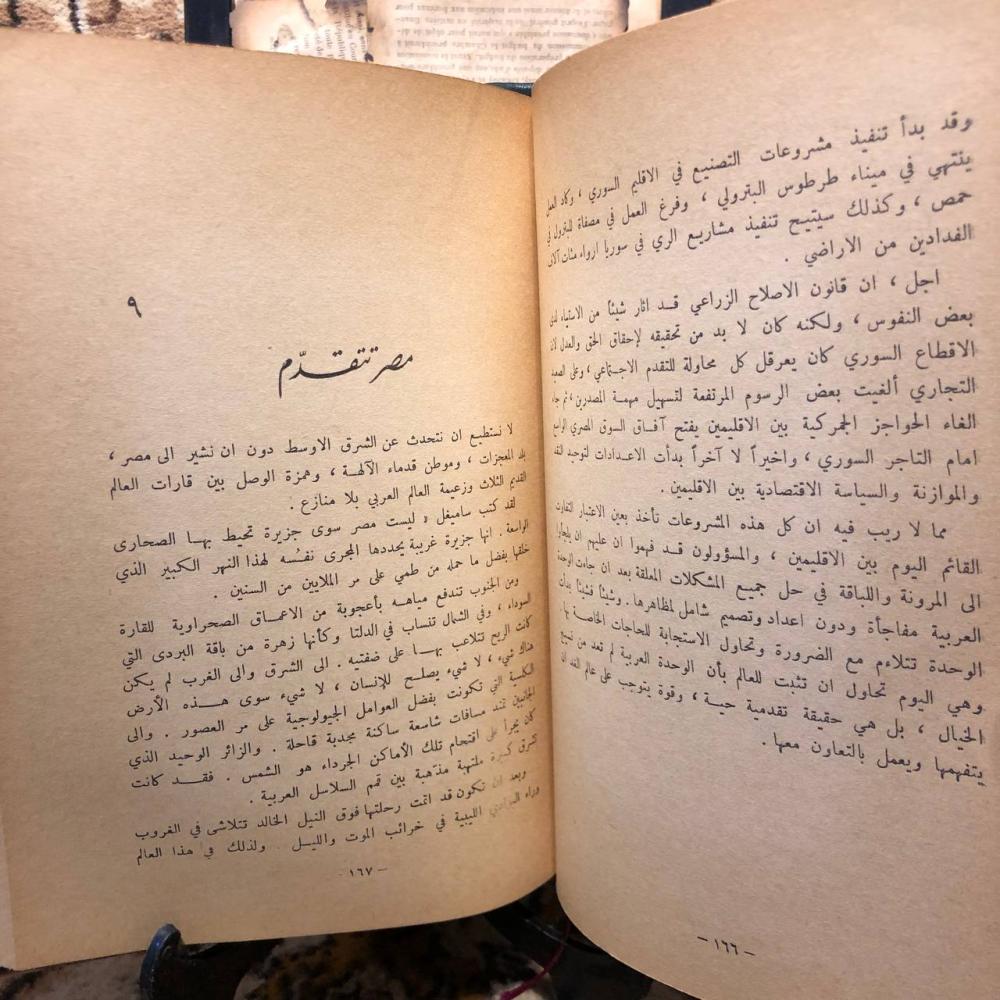 وقد بدأ تنفيذ مشروعات التصنيع في الاقليم السوري ، وكاد العمل
ينتهي في ميناء طرطوس البترولي ، وفرغ العمل في مصفاة للبترول في
حمص ، وكذلك سيتيح تنفيذ مشاريع الري في سوريا ارواء مئات آلاف
الفدادين من الاراضي .
اجل ، ان قانون الاصلاح الزراعي قد اثار شيئاً من الاستياء لدى
بعض النفوس ، ولكنه كان لا بد من تحقيقه لإحقاق الحق والعدل لان
الاقطاع السوري كان يعرقل كل محاولة للتقدم الاجتماعي ، وعلى الصعيد
التجاري ألغيت بعض الرسوم المرتفعة لتسهيل مهمة المصدرين ، ثم جاء
الغاء الحواجز الجمركية بين الاقليمين يفتح آفاق السوق المصري الواسع
امام التاجر السوري ، واخيراً لا آخراً بدأت الاعدادات لتوحيد النقد
والموازنة والسياسة الاقتصادية بين الاقليمين .
مما لا ريب فيه ان كل هذه المشروعات تأخذ بعين الاعتبار التفاوت
القائم اليوم بين الاقليمين ، والمسؤولون قد فهموا ان عليهم ان يلجأوا
الى المرونة واللباقة في حل جميع المشكلات المعلقة بعد ان جاءت الوحدة
العربية مفاجأة ودون اعداد وتصميم شامل لمظاهرها . وشيئاً فشيئاً بدأت
الوحدة تتلاءم مع الضرورة وتحاول الاستجابة للحاجات الخاصة بها .
وهي اليوم تحاول ان تثبت للعالم بأن الوحدة العربية لم تعد من نسج
الخيال ، بل هي حقيقة تقدمية حية ، وقوة يتوجب على عالم الغد ان
يتفهمها ويعمل بالتعاون معها .
– ١٦٦ –
٩
مصر تتقدّم
لا نستطيع ان نتحدث عن الشرق الاوسط دون ان نشير الى مصر ،
بلد المعجزات ، وموطن قدماء الآلهة ، وهمزة الوصل بين قارات العالم
القديم الثلاث وزعيمة العالم العربي بلا منازع .
لقد كتب ساميغل « ليست مصر سوى جزيرة تحيط بها الصحارى
الواسعة . انها جزيرة غريبة يحددها المجرى نفسُه لهذا النهر الكبير الذي
خلقها بفضل ما حمله من طمي على مر الملايين من السنين .
ومن الجنوب تندفع مياهه بأعجوبة من الاعماق الصحراوية للقارة
السوداء ، وفي الشمال تنساب في الدلتا وكأنها زهرة من باقة البردى التي
كانت الريح تتلاعب بها على ضفتيه . الى الشرق والى الغرب لم يكن
هناك شيء ، لا شيء يصلح للإنسان ، لا شيء سوى هذه الأرض
الكلسية التي تكونت بفضل العوامل الجيولوجية على مر العصور . والى
الجانبين تمتد مسافات شاسعة ساكنة مجدبة قاحلة . والزائر الوحيد الذي
كان يجرأ على اقتحام تلك الأماكن الجرداء هو الشمس . فقد كانت
تشرق كبيرة ملتهبة مذهبة بين قمم السلاسل العربية .
وبعد ان تكون قد اتمت رحلتها فوق النيل الخالد تتلاشى في الغروب
وراء الليبية في خرائب الموت والليل . ولذلك في هذا العالم
– ١٦٧ –